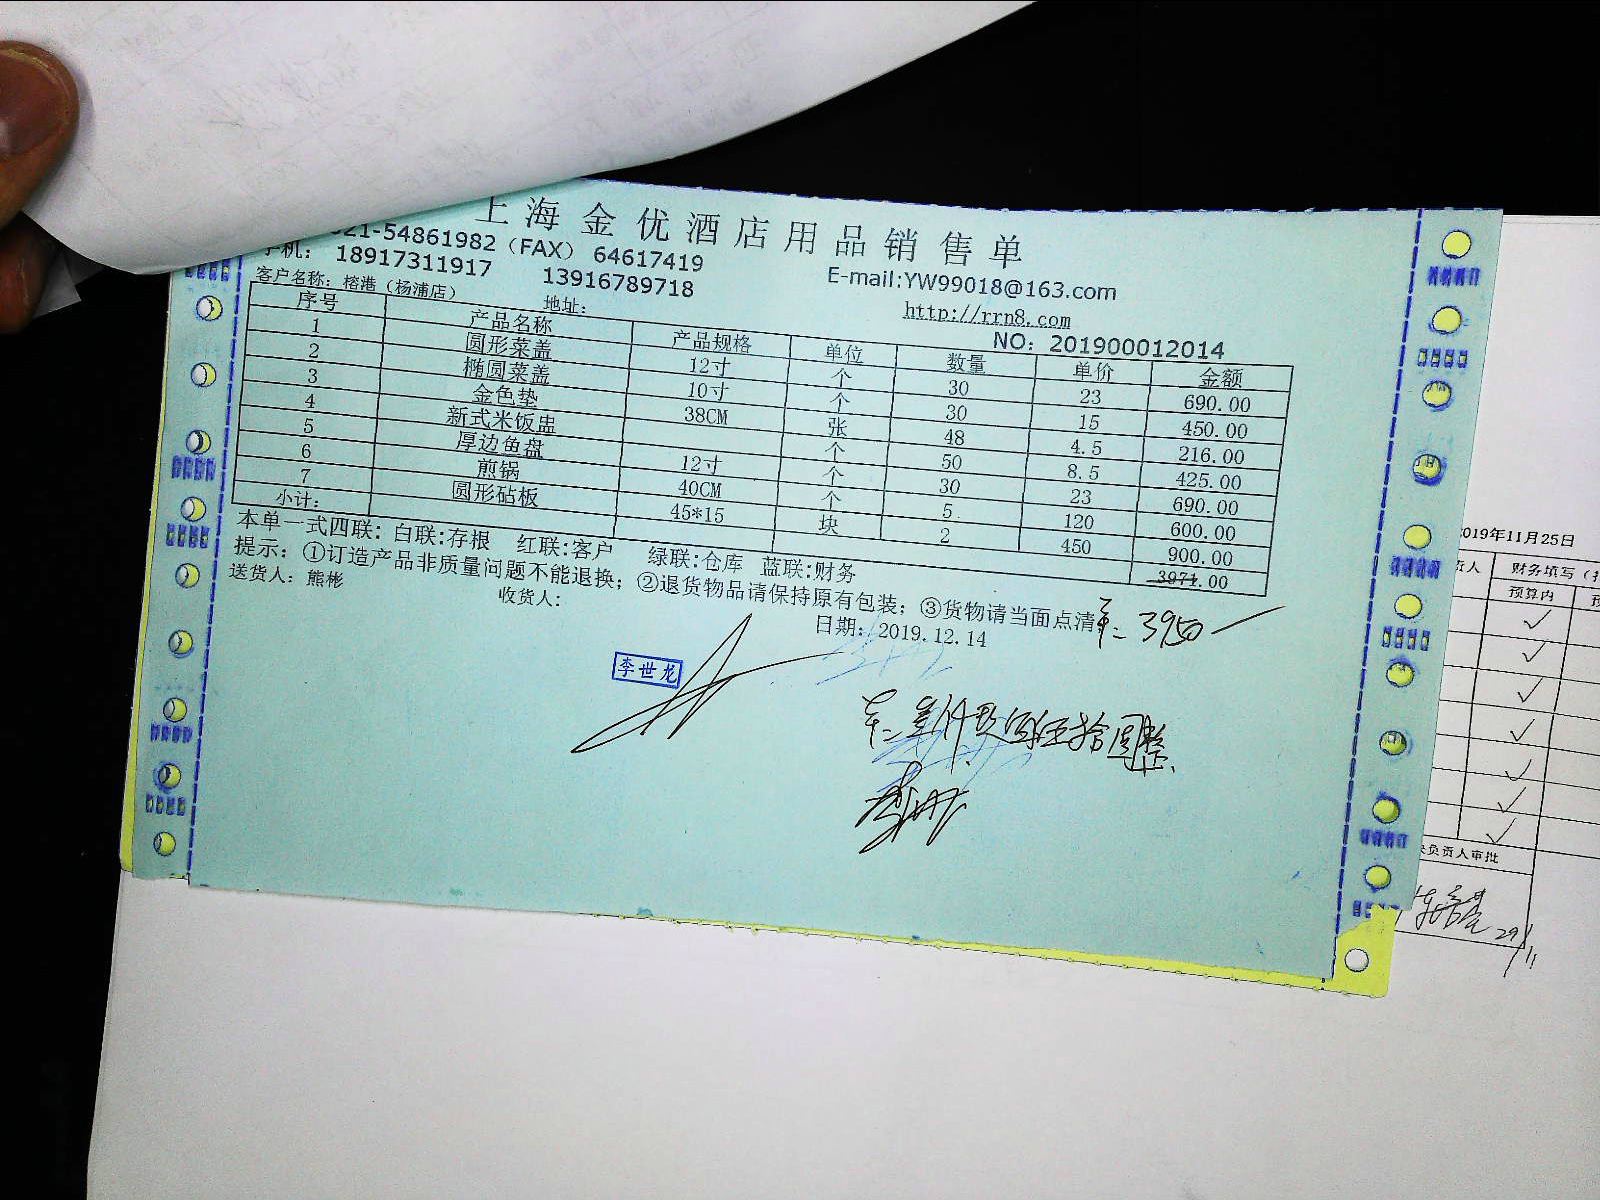 上海金优酒店用品销售单
021-54861982（FAX）64617419
手机： 18917311917 13916789718
E-mail:YW99018@163.com
http://rrn8.com
客户名称：榕港（杨浦店） 地址：
NO：201900012014
序号 产品名称 产品规格 单位 数量 单价 金额
1 圆形菜盖 12寸 个 30 23 690.00
2 椭圆菜盖 10寸 个 30 15 450.00
3 金色垫 38CM 张 48 4.5 216.00
4 新式米饭盅 个 50 8.5 425.00
5 厚边鱼盘 12寸 个 30 23 690.00
6 煎锅 40CM 个 5 120 600.00
7 圆形砧板 45*15 块 2 450 900.00
小计： 3971.00
本单一式四联：白联:存根 红联:客户 绿联:仓库 蓝联:财务
提示：①订造产品非质量问题不能退换；②退货物品请保持原有包装；③货物请当面点清
送货人：熊彬 收货人： 日期：2019.12.14
3950
李世龙
叁仟玖佰伍拾圆整
2019年11月25日
财务填写
预算内
负责人审批
29/11